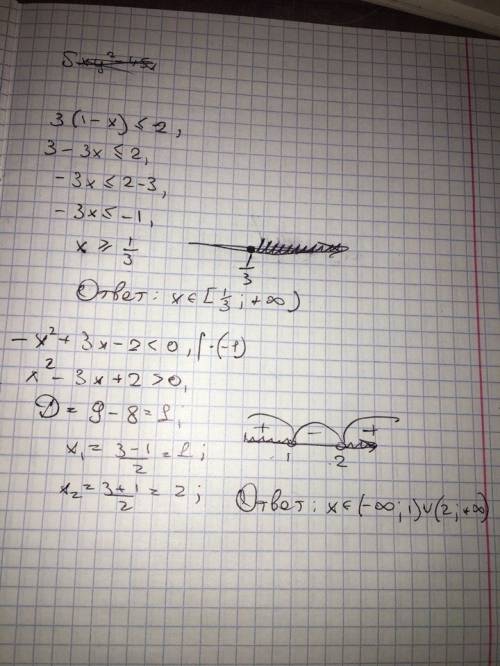 3(1-x) ≤ 2,
3 - 3x ≤ 2,
-3x ≤ 2-3,
-3x ≤ -1,
x ≥ 1/3
1/3
Ответ: x ∈ [1/3; +∞)
-x² + 3x - 2 < 0, |·(-1)
x² - 3x + 2 > 0,
D = 9 - 8 = 1;
x₁ = (3-1)/2 = 1;
x₂ = (3+1)/2 = 2;
+ - +
1 2
Ответ: x ∈ (-∞; 1) ∪ (2; +∞)